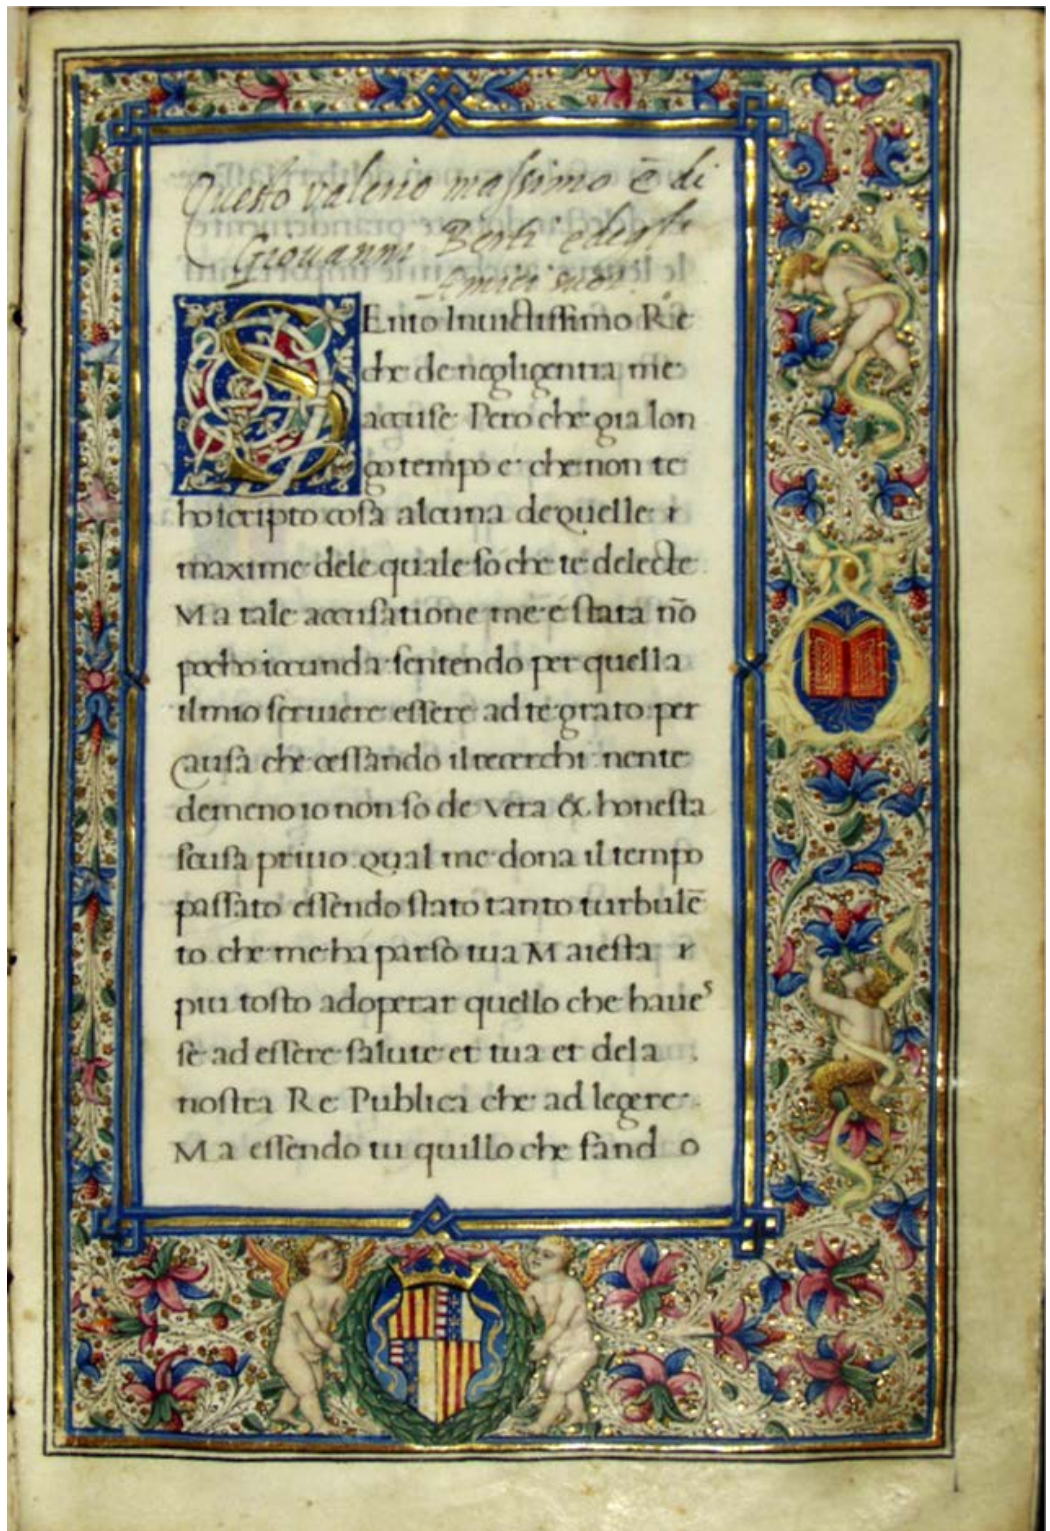 Questo valerio massimo ē di
Giovanni Berti e degli
Amici suoi
Ento Inuictissimo Re
che de negligentia me
accuse· Pero che gia lon
go tempo e· che non te
ho scripto cosa alcuna de quelle ⁊
maxime dele quale so che te delecte
Ma tale accusatione me e stata nō
pocho iocunda sentendo per quella
il mio scriuere essere ad te grato per
causa che cessando il recerchi· nente
demeno io non so de vera & honesta
scusa priuo qual me dona il tempo
passato essendo stato tanto turbulē
to che me ha parso tua Maiesta ⁊
piu tosto adoperar quello che haues
se ad essere salute et tua et dela
nostra Re Publica che ad legere·
Ma essendo tu quillo che sando